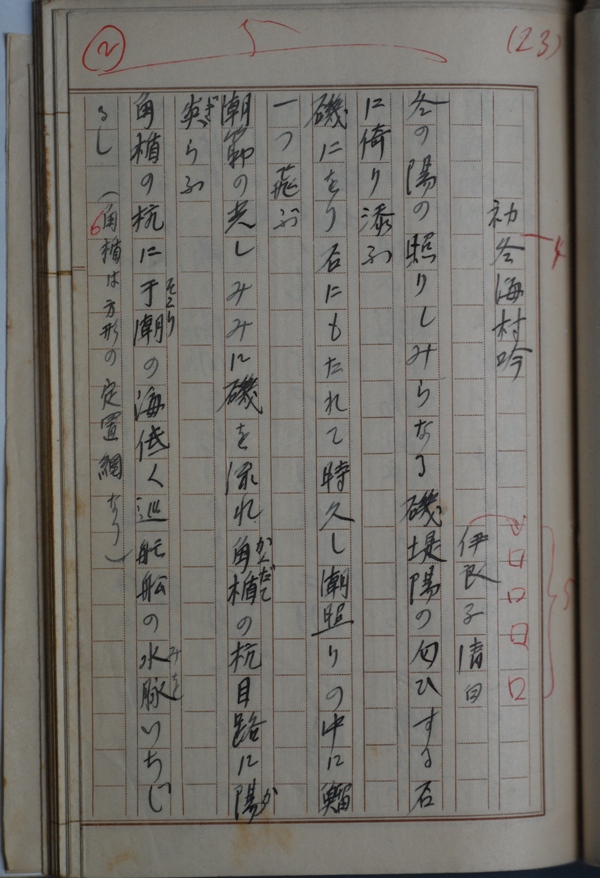 ② 5 (23)
初冬海村吟 4
伊良子清白 5
冬の陽の照りしみらなる磯堤陽の匂ひする石
に倚り添ふ
磯にをり石にもたれて時久し潮照りの中に鯔
一つ飛ぶ
潮箭の光しみみに磯を流れ角楯の杭目路に陽
炎らふ
角楯の杭に干潮の海低く巡航船の水脈いちじ
るし (角楯は方形の定置網なり) 6
かくだて
か
ぎ
そこり
みを